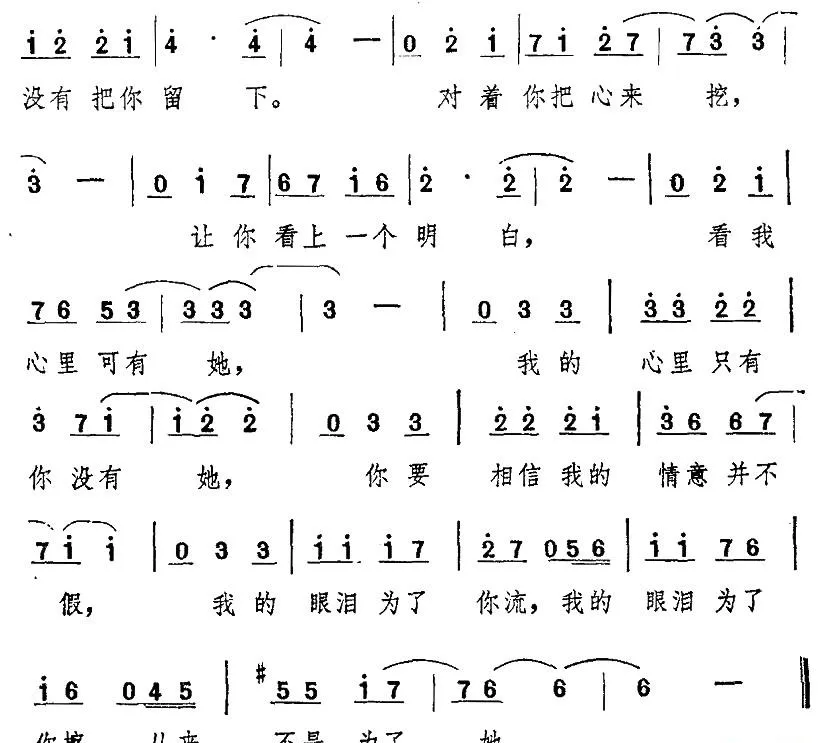 i 2 2 i | 4 · 4 | 4 — | 0 2 i | 7 i 2 7 | 7 3 3 |
没有 把你 留 下。 对 着 你把 心来 挖，
3 — | 0 i 7 | 6 7 i 6 | 2 · 2 | 2 — | 0 2 i |
让 你 看上 一个 明 白， 看 我
7 6 5 3 | 3 3 3 | 3 — | 0 3 3 | 3 3 2 2 |
心里 可有 她， 我 的 心里 只有
3 7 i | i 2 2 | 0 3 3 | 2 2 2 i | 3 6 6 7 |
你 没有 她， 你 要 相信 我的 情意 并不
7 i i | 0 3 3 | i i i 7 | 2 7 0 5 6 | i i 7 6 |
假， 我 的 眼泪 为了 你流，我的 眼泪 为了
i 6 0 4 5 | #5 5 i 7 | 7 6 6 | 6 — ‖